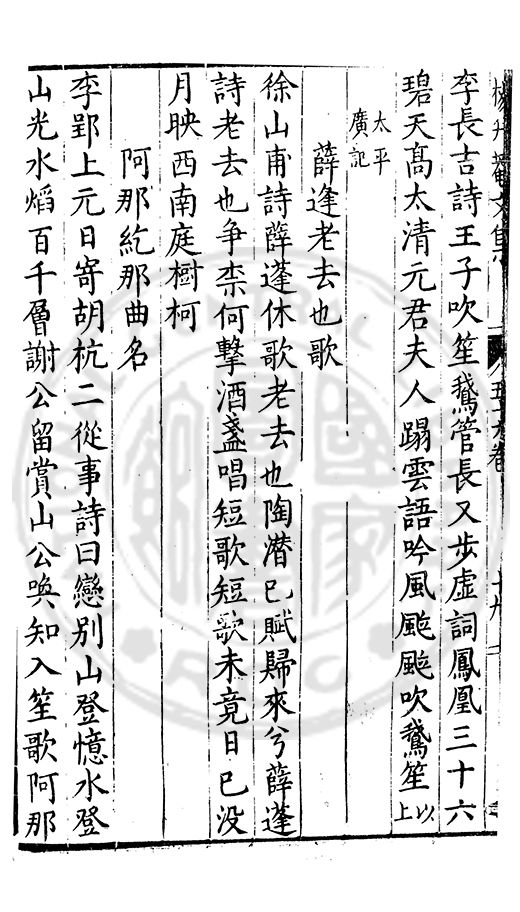 李長吉詩王子吹笙鵞管長又步虛詞鳳凰三十六
碧天髙太清元君夫人蹋雲語吟風颮颮吹鵞笙以上
太平
廣記
薛逢老去也歌
徐山甫詩薛蓬休歌老去也陶潜已賦歸來兮薛蓬
詩老去也争柰何擊酒盞唱短歌短歌未竟日已没
月映西南庭樹柯
阿那紇那曲名
李郢上元日寄胡杭二從事詩曰戀別山登憶水登
山光水熖百千層謝公留賞山公喚知入笙歌阿那